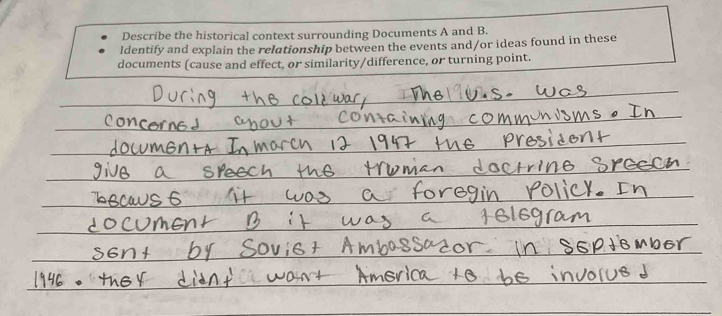 • Describe the historical context surrounding Documents A and B.
• Identify and explain the relationship between the events and/or ideas found in these
documents (cause and effect, or similarity/difference, or turning point.
During the cold war, The U.S. was
concerned about containing communisms. In
documentA In march 12 1947 the President
give a speech the truman doctrine speech
because it was a foregin policy. In
document B it was a telegram
sent by Soviet Ambassador. In September
1946. they didnt want America to be involved